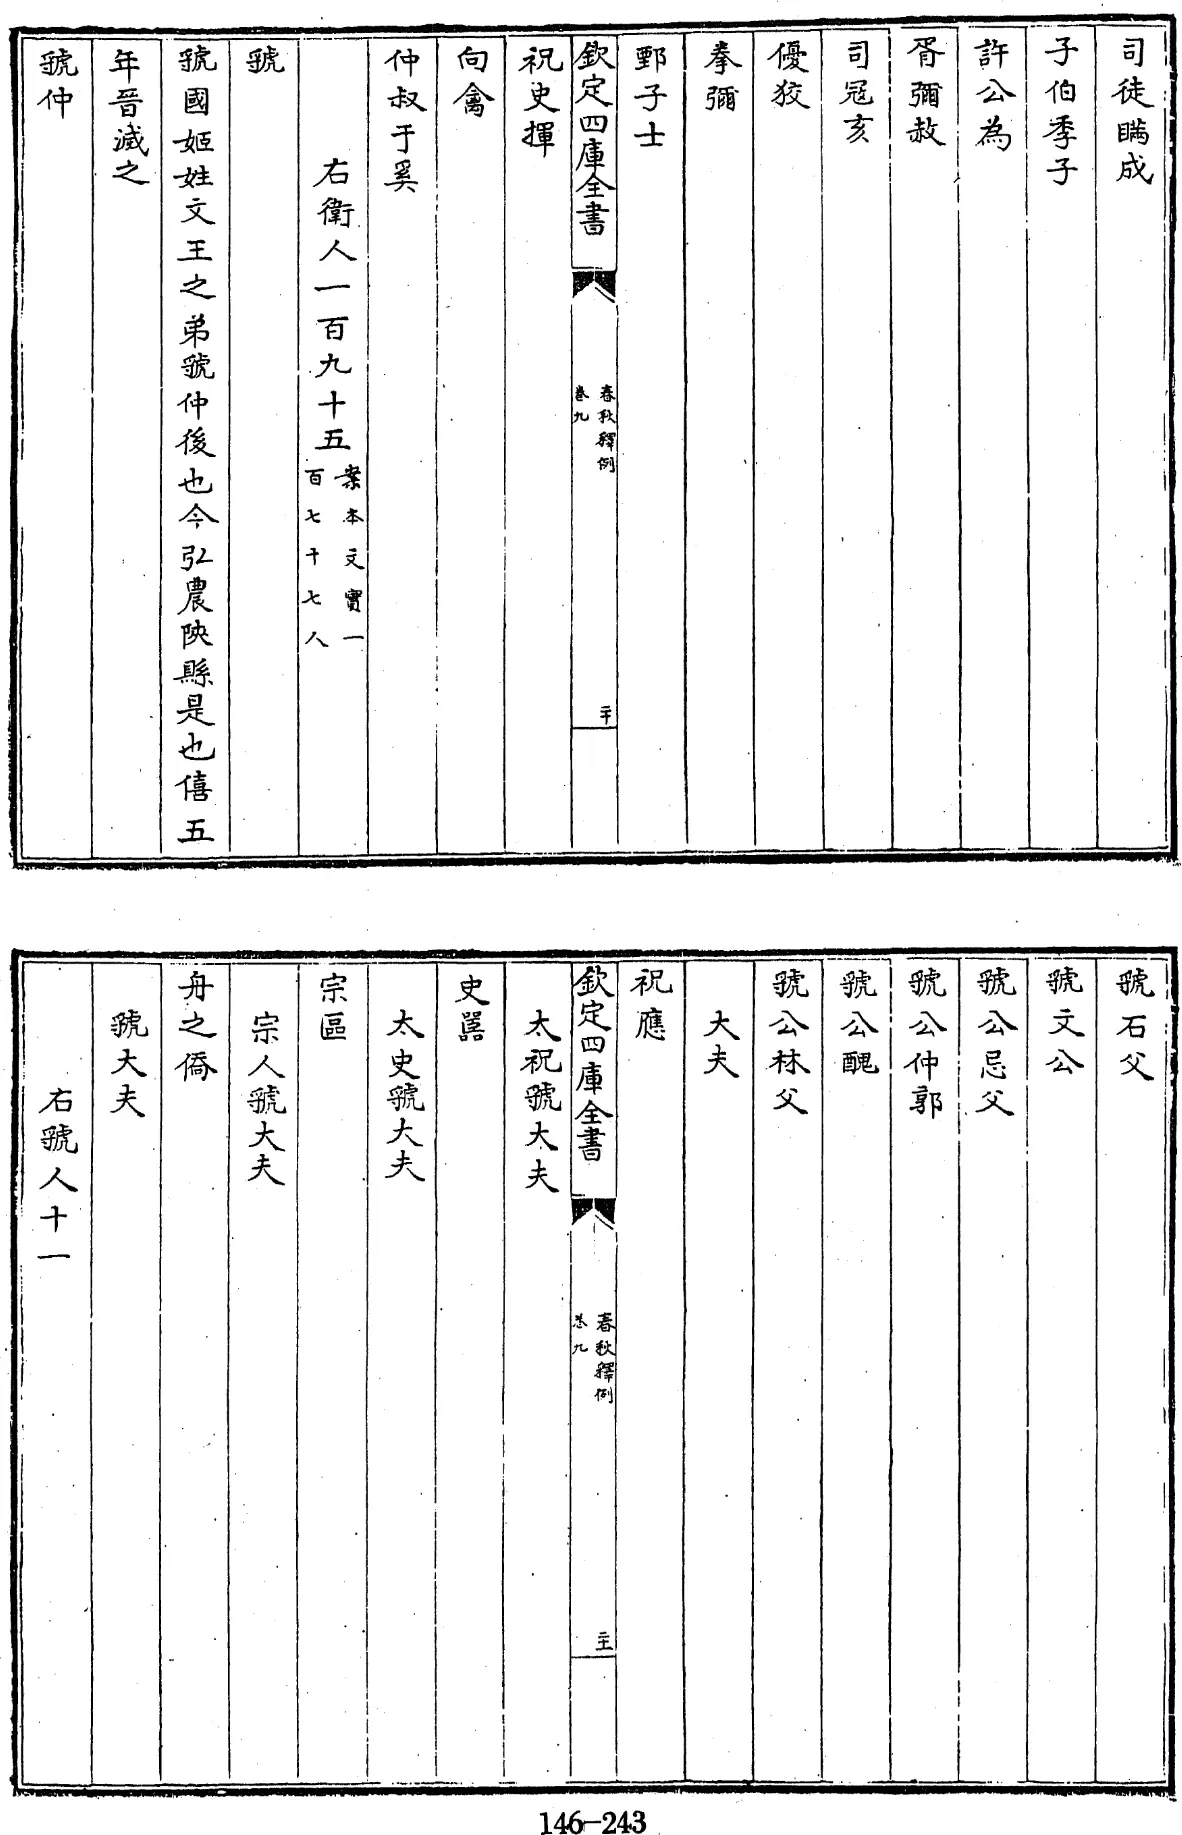 司徒瞞成
子伯季子
許公為
胥彌赦
司寇亥
優狡
拳彌
鄄子士
欽定四庫全書
春秋釋例
卷九
二十
祝史揮
向禽
仲叔于奚
右衛人一百九十五案本文實一百七十七人
虢
虢國姬姓文王之弟虢仲後也今弘農陜縣是也僖五
年晉滅之
虢仲
虢石父
虢文公
虢公忌父
虢公仲郭
虢公醜
虢公林父
大夫
祝應
欽定四庫全書
春秋釋例
卷九
二十一
太祝虢大夫
史嚚
太史虢大夫
宗區
宗人虢大夫
舟之僑
虢大夫
右虢人十一
146-243